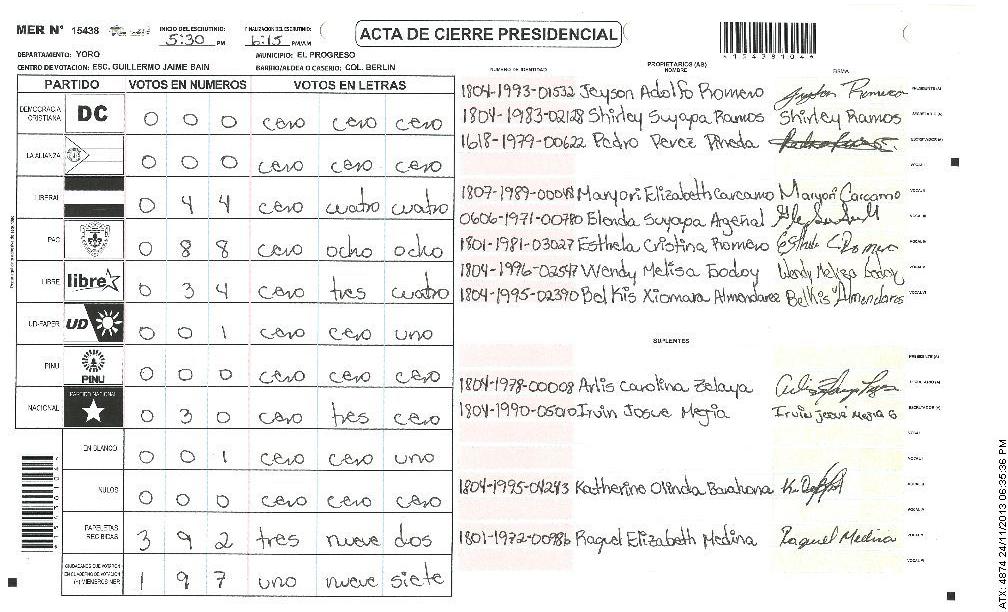 MER N° 15438
INICIO DEL ESCRUTINIO: 5:30 PM
FINALIZACION DEL ESCRUTINIO: 6:15 PM/AM
ACTA DE CIERRE PRESIDENCIAL
DEPARTAMENTO: YORO
MUNICIPIO: EL PROGRESO
CENTRO DE VOTACION: ESC. GUILLERMO JAIME BAIN
BARRIO/ALDEA O CASERIO: COL. BERLIN
PARTIDO VOTOS EN NUMEROS VOTOS EN LETRAS
DEMOCRACIA CRISTIANA DC 0 0 0 cero cero cero
LA ALIANZA 0 0 0 cero cero cero
LIBERAL 0 4 4 cero cuatro cuatro
PAC 0 8 8 cero ocho ocho
LIBRE libre 0 3 4 cero tres cuatro
UD-FAPER UD 0 0 1 cero cero uno
PINU PINU 0 0 0 cero cero cero
NACIONAL PARTIDO NACIONAL 0 3 0 cero tres cero
EN BLANCO 0 0 1 cero cero uno
NULOS 0 0 0 cero cero cero
PAPELETAS RECIBIDAS 3 9 2 tres nueve dos
CIUDADANOS QUE VOTARON EN CUADERNO DE VOTACION (+) MIEMBROS MER 1 9 7 uno nueve siete
NUMERO DE IDENTIDAD PROPIETARIOS (AS) NOMBRE FIRMA
1804-1993-01532 Jeyson Adolfo Romero PRESIDENTE (A)
1804-1983-02128 Shirley Suyapa Ramos Shirley Ramos SECRETARIO (A)
1618-1979-00622 Pedro Perez Pineda ESCRUTADOR (A)
VOCAL I
1807-1989-00048 Maryori Elizabeth Carcamo Maryori Carcamo VOCAL II
0606-1971-00780 Elenda Suyapa
1801-1981-03027 Esthela Cristina Romero
1804-1996-02547 Wendy Melisa Godoy Wendy Meliza Godoy
1804-1995-02390 Belkis Xiomara Almendarez Belkis Almendares
SUPLENTES
PRESIDENTE (A)
1804-1978-00008 Arlis Carolina Zelaya
1804-1990-05010 Irvin Josue Megia Irvin Josue Megia G ESCRUTADOR (A)
VOCAL I
1804-1995-04243 Katherine Olinda Barahona
1801-1972-00986 Raquel Elizabeth Medina Raquel Medina
ATX: 4874 24/11/2013 06:35:36 PM